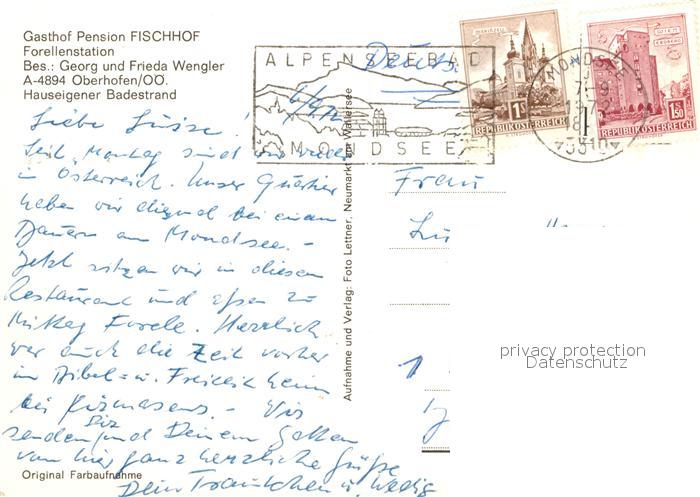 Gasthof Pension FISCHHOF
Forellenstation
Bes.: Georg und Frieda Wengler
A-4894 Oberhofen/OÖ.
Hauseigener Badestrand
ALPENSEEBAD
MONDSEE
MARIAZELL
1S
REPUBLIK ÖSTERREICH
1.50
REPUBLIK ÖSTERREICH
MONDSEE
7.-9
1972
5310
Liebe Luise!
Seit Montag sind wir wieder
in Österreich. Unser Quartier
haben wir diesmal bei einem
Bauern am Mondsee. -
Jetzt sitzen wir in diesem
Restaurant und essen zu
Mittag Forelle. Herrlich
war auch die Zeit vorher
im Bibel= u. Freizeitheim
bei Pirmasens. - Wir
senden Dir und Deinem Gatten
von hier ganz herzliche Grüße
Dein Traudchen u.
Original Farbaufnahme
Aufnahme und Verlag: Foto Lettner, Neumarkt am Wallersee
Frau
privacy protection
Datenschutz